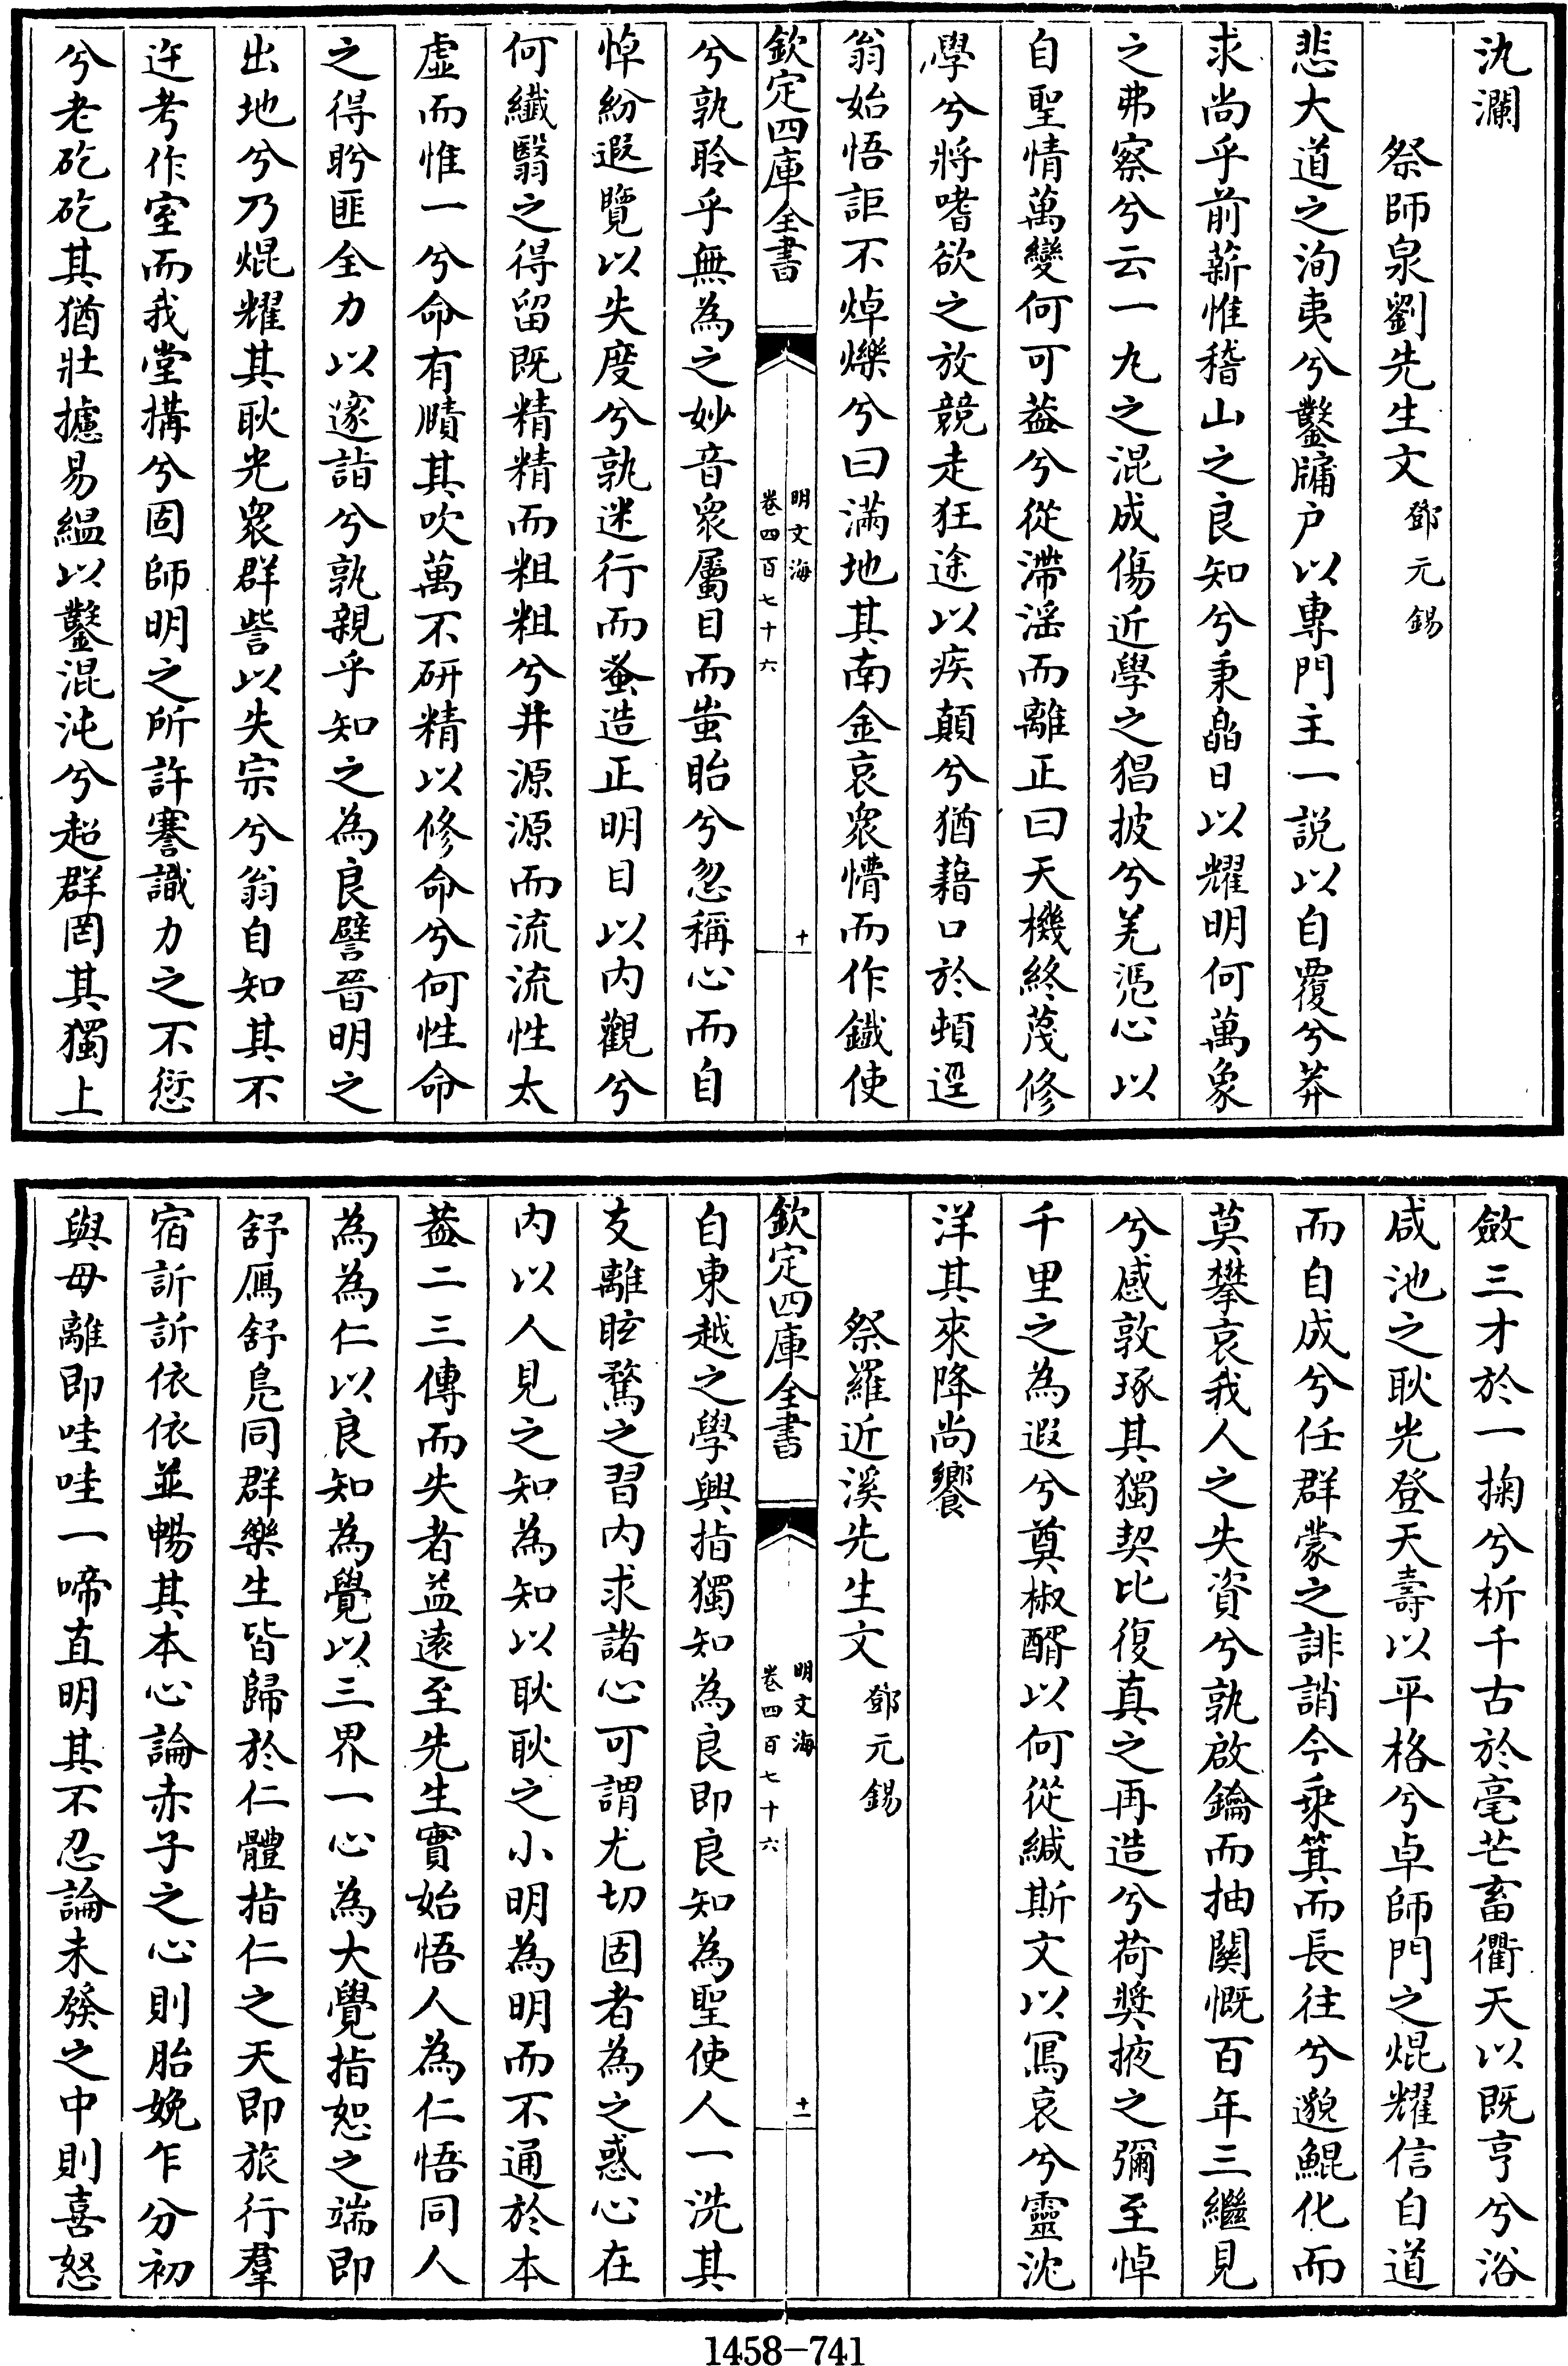 汍瀾
祭師泉劉先生文 鄧元錫
悲大道之洵夷兮鑿牗户以専門主一説以自覆兮莽
求尚乎前薪惟稽山之良知兮秉皛日以耀明何萬象
之弗察兮云一九之混成傷近學之猖披兮羌憑心以
自聖情萬變何可葢兮從滯滛而離正曰天機終茂修
學兮將嗜欲之放競走狂途以疾顛兮猶藉口於頓逕
翁始悟詎不焯爍兮曰滿地其南金哀衆懵而作鐡使
欽定四庫全書
明文海
卷四百七十六
十
兮孰聆乎無為之妙音衆屬目而蚩眙兮忽稱心而自
悼紛遐覽以失度兮孰迷行而蚤造正明目以内觀兮
何纎翳之得留既精精而粗粗兮井源源而流流性太
虚而惟一兮命有賾其吹萬不研精以修命兮何性命
之得盻匪全力以邃詣兮孰親乎知之為良譬晉明之
出地兮乃焜耀其耿光衆群訾以失宗兮翁自知其不
迕考作室而我堂構兮固師明之所許謇識力之不愆
兮老矻矻其猶壯攄易緼以鑿混沌兮超群罔其獨上
斂三才於一掬兮析千古於毫芒畜衢天以既亨兮浴
咸池之耿光登天壽以平格兮卓師門之焜耀信自道
而自成兮任群蒙之誹誚今乗箕而長往兮邈鯤化而
莫攀哀我人之失資兮孰啟鑰而抽闗慨百年三繼見
兮感敦琢其獨契比復真之再造兮荷奬掖之彌至悼
千里之為遐兮奠椒醑以何從緘斯文以冩哀兮靈沈
洋其來降尚饗
祭羅近溪先生文 鄧元錫
欽定四庫全書
明文海
卷四百七十六
十一
自東越之學興指獨知為良即良知為聖使人一洗其
支離眩騖之習内求諸心可謂尤切固者為之惑心在
内以人見之知為知以耿耿之小明為明而不通於本
葢二三傳而失者益逺至先生實始悟人為仁悟同人
為為仁以良知為覺以三界一心為大覺指恕之端即
舒鴈舒鳬同群樂生皆歸於仁體指仁之天即旅行羣
宿訢訢依依並暢其本心論赤子之心則胎娩乍分初
與母離即哇哇一啼直明其不忍論未發之中則喜怒
1458-741